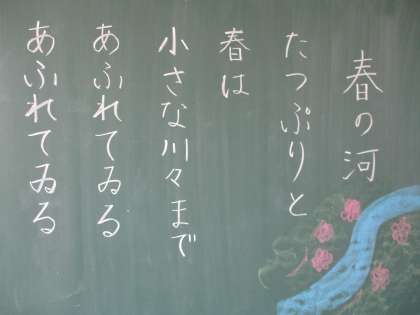 春の河
たっぷりと
春は
小さな川々まで
あふれてゐる
あふれてゐる